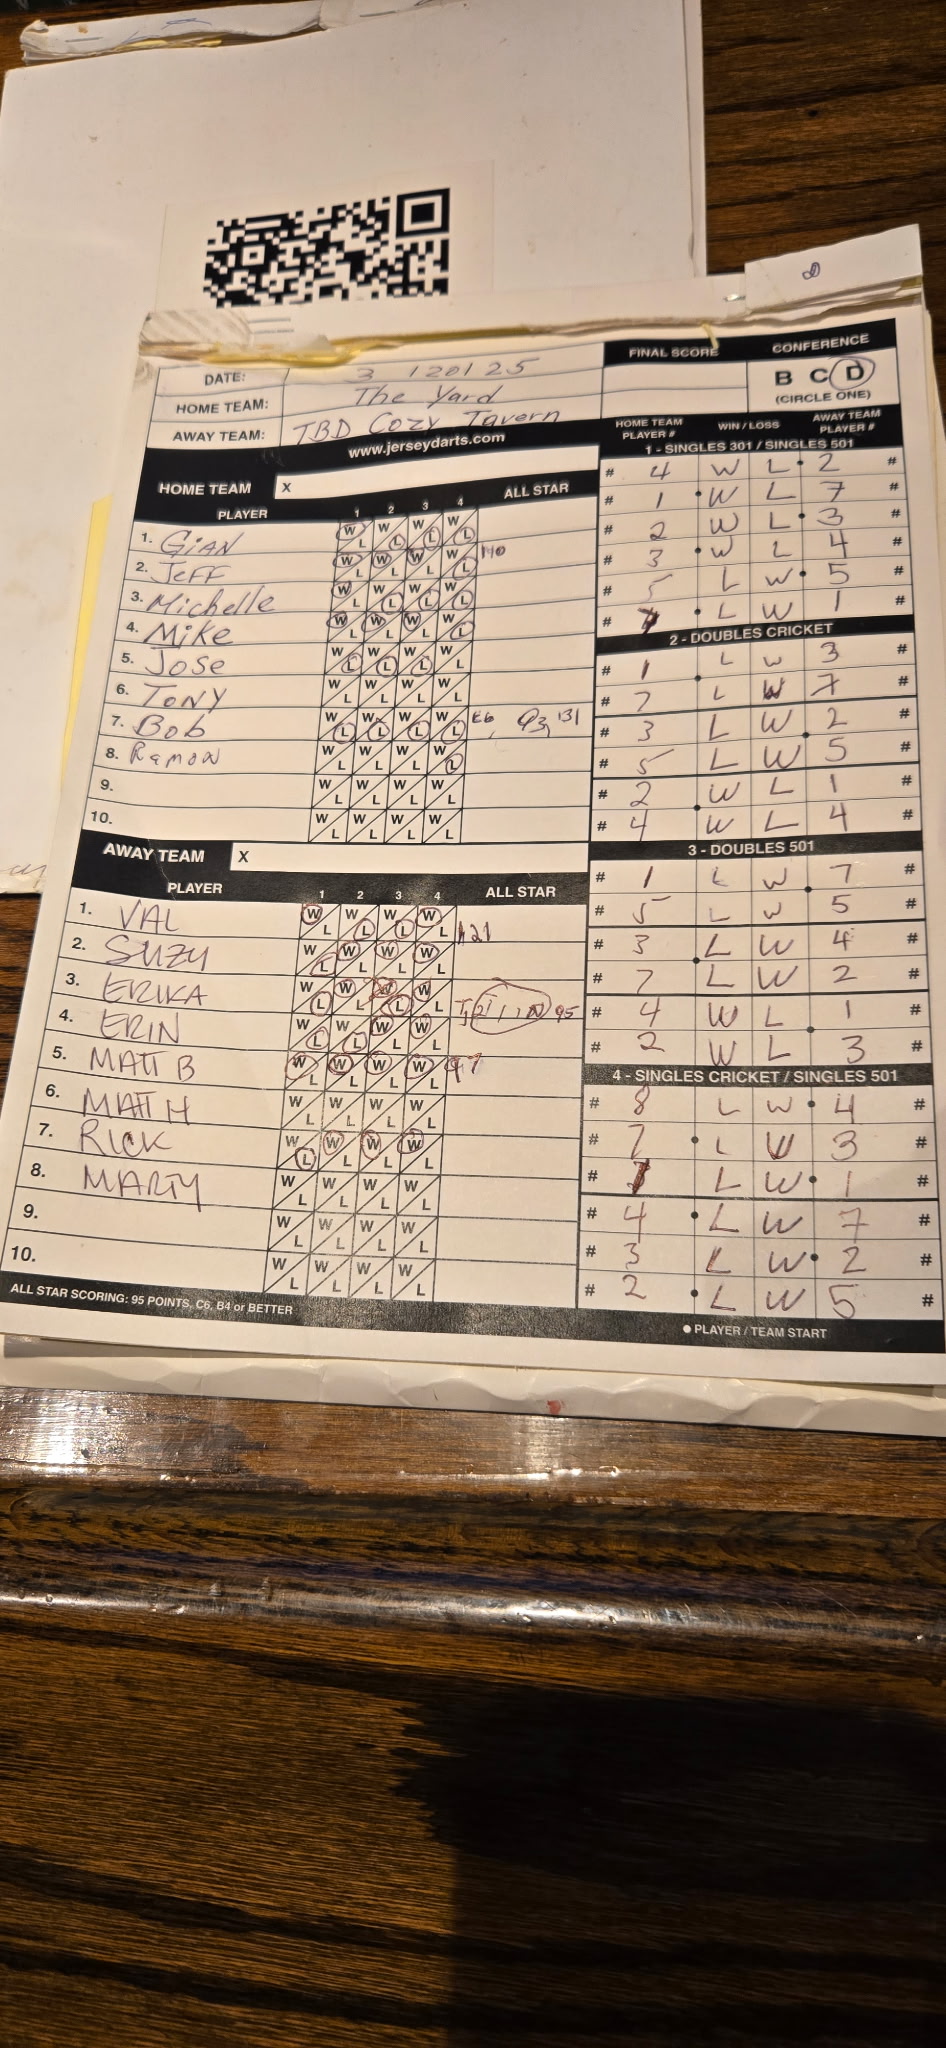 FINAL SCORE CONFERENCE
DATE: 3 /20/25
B C D
(CIRCLE ONE)
HOME TEAM: The Yard
AWAY TEAM: TBD Cozy Tavern
www.jerseydarts.com
HOME TEAM PLAYER # WIN / LOSS AWAY TEAM PLAYER #
1 - SINGLES 301 / SINGLES 501
# 4 W L 2 #
# 1 W L 7 #
# 2 W L 3 #
# 3 W L 4 #
# 5 L W 5 #
# 7 L W 1 #
2 - DOUBLES CRICKET
# 1 L W 3 #
# 7 L W 7 #
# 3 L W 2 #
# 5 L W 5 #
# 2 W L 1 #
# 4 W L 4 #
3 - DOUBLES 501
# 1 L W 7 #
# 5 L W 5 #
# 3 L W 4 #
# 7 L W 2 #
# 4 W L 1 #
# 2 W L 3 #
4 - SINGLES CRICKET / SINGLES 501
# 8 L W 4 #
# 7 L W 3 #
# L W 1 #
# 4 L W 7 #
# 3 L W 2 #
# 2 L W 5 #
PLAYER / TEAM START
HOME TEAM X
PLAYER 1 2 3 4 ALL STAR
1. GIAN W L W L W L W L
2. JEFF W L W L W L W L 140
3. Michelle W L W L W L W L
4. Mike W L W L W L W L
5. JOSE W L W L W L W L
6. TONY W L W L W L W L
7. Bob W L W L W L W L 131
8. Ramon W L W L W L W L
9. W L W L W L W L
10. W L W L W L W L
AWAY TEAM X
PLAYER 1 2 3 4 ALL STAR
1. VAL W L W L W L W L 121
2. SUZY W L W L W L W L
3. ERIKA W L W L W L W L 95
4. ERIN W L W L W L W L
5. MATT B W L W L W L W L 97
6. MATT H W L W L W L W L
7. RICK W L W L W L W L
8. MARTY W L W L W L W L
9. W L W L W L W L
10. W L W L W L W L
ALL STAR SCORING: 95 POINTS, C6, B4 or BETTER